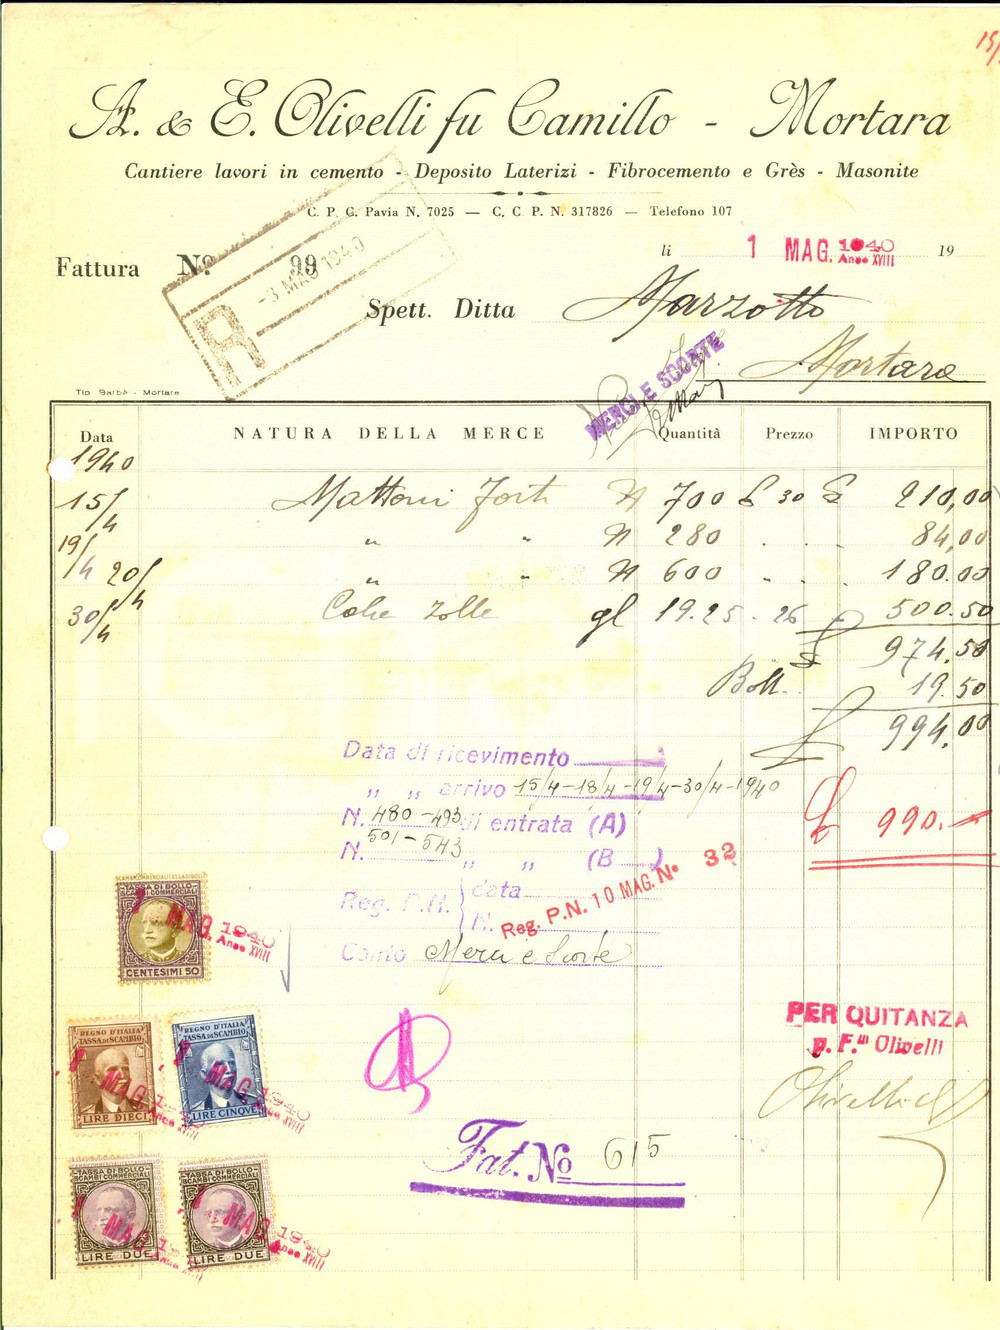 15/
A. & E. Olivelli fu Camillo - Mortara
Cantiere lavori in cemento - Deposito Laterizi - Fibrocemento e Grès - Masonite
C. P. C. Pavia N. 7025 — C. C P. N. 317826 — Telefono 107
Fattura Nº 99
R -3 MAG 1940
li 1 MAG. 1940 Anno XVIII 19
Spett. Ditta Marzotto
Mortara
MERCI E SCORTE
Tip Barbè - Mortara
Data NATURA DELLA MERCE Quantità Prezzo IMPORTO
1940
15/4 Mattoni forti N 700 £ 30 £ 210,00
19/4 " " N 280 . . 84,00
20/4 " " N 600 " . 180.00
30/4 Coke zolle ql 19.25 - 26 500.50
£ 974.50
Boll. 19.50
£ 994.00
Data di ricevimento
" " arrivo 15/4-18/4-19/4-30/4-1940
£ 990.-
N. 480-493 di entrata (A)
N. 501-543 " " (B )
Reg. P.N. data
N.
Reg. P.N. 10 MAG. Nº 32
Conto Merci e Scorte
TASSA DI BOLLO
SCAMBI COMMERCIALI
CENTESIMI 50
1 MAG. 1940
Anno XVIII
PER QUITANZA
p. F.lli Olivelli
REGNO D'ITALIA
TASSA DI SCAMBIO
LIRE DIECI
1 MAG. 1940
Anno XVIII
REGNO D'ITALIA
TASSA DI SCAMBIO
LIRE CINQUE
1 MAG. 1940
Anno XVIII
Fat. Nº 615
TASSA DI BOLLO
SCAMBI COMMERCIALI
LIRE DUE
1 MAG. 1940
Anno XVIII
TASSA DI BOLLO
SCAMBI COMMERCIALI
LIRE DUE
1 MAG. 1940
Anno XVIII